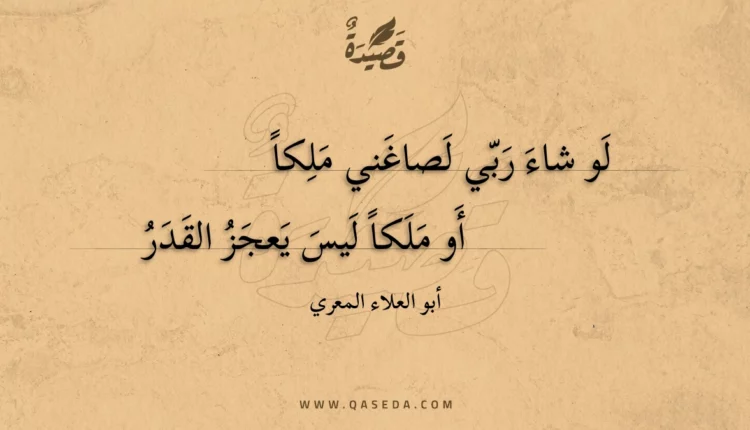 قَصِيدَةٌ
لَو شاءَ رَبّي لَصاغَني مَلِكاً
أَو مَلَكاً لَيسَ يَعجَزُ القَدَرُ
أبو العلاء المعري
WWW.QASEDA.COM